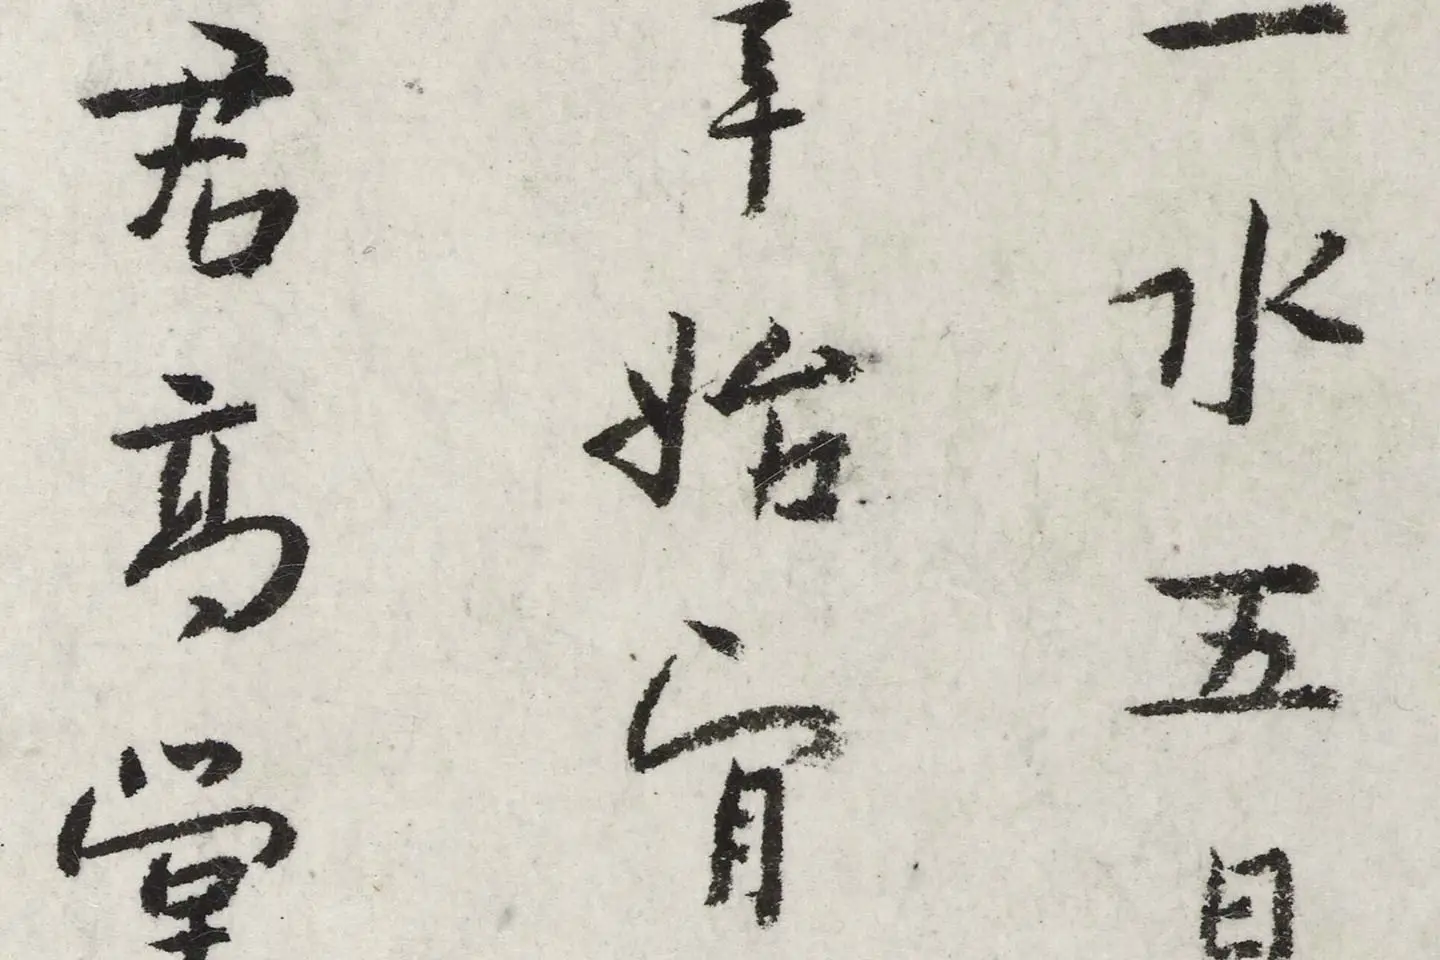 一水五日
宰始肯
君高堂